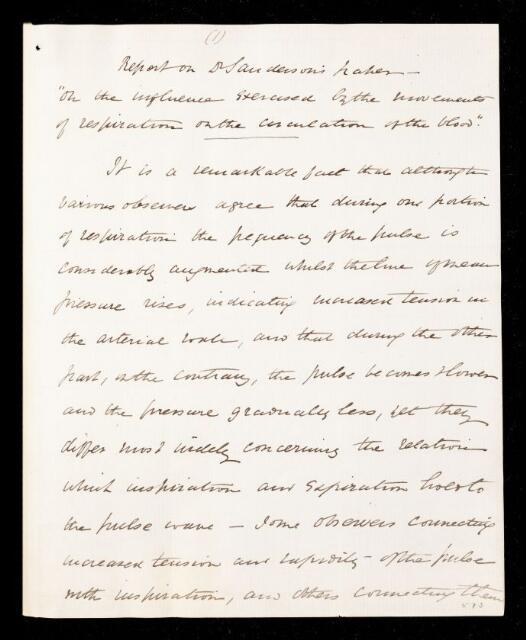 (1)
Report on Dr Sanderson's paper —
"On the influence exercised by the movements
of respiration on the circulation of the blood".
It is a remarkable fact that although
various observers agree that during one portion
of respiration the frequency of the pulse is
considerably augmented whilst the line of mean
pressure rises, indicating increased tension in
the arterial walls, and that during the other
part, on the contrary, the pulse becomes slower
and the pressure gradually less, yet they
differ most widely concerning the relation
which inspiration and expiration hold to
the pulse wave — some observers connecting
increased tension and rapidity of the pulse
with inspiration, and others connecting them